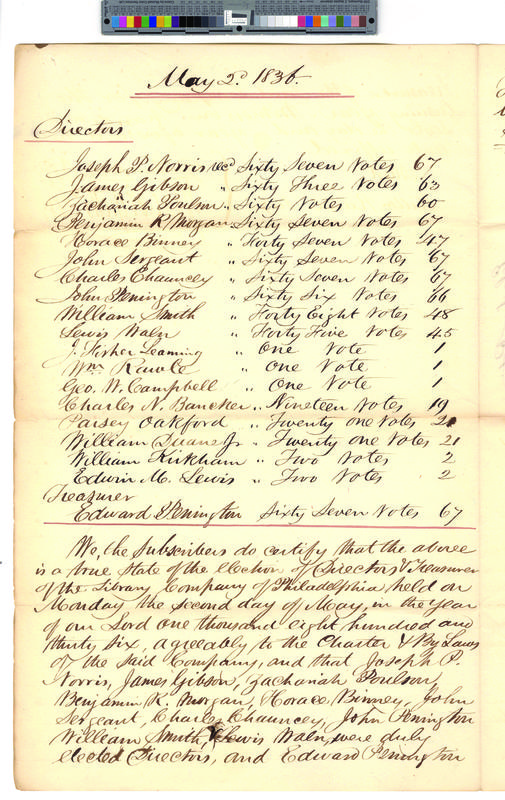 May 2d. 1836.
Directors
Joseph P. Norris recd Sixty Seven Votes 67
James Gibson " Sixty Three Votes 63
Zachariah Poulson " Sixty Votes 60
Benjamin R. Morgan Sixty Seven Votes 67
Horace Binney " Forty Seven Votes 47
John Sergeant " Sixty Seven Votes 67
Charles Chauncey " Sixty Seven Votes 67
John Penington " Sixty Six Votes 66
William Smith " Forty Eight Votes 48
Lewis Waln " Forty Five Votes 45
J. Fisher Leaming " One Vote 1
Wm. Rawle " One Vote 1
Geo. W. Campbell " One Vote 1
Charles N. Bancker " Nineteen Votes 19
Parsey Oakford " Twenty one Votes 21
William Duane Jr " Twenty one Votes 21
William Kirkham " Two Votes 2
Edwin M. Lewis " Two Votes 2
Treasurer
Edward Penington Sixty Seven Votes 67
We, the Subscribers do certify that the above
is a true state of the election of Directors & Treasurer
of the Library Company of Philadelphia held on
Monday the second day of May, in the year
of our Lord one thousand eight hundred and
thirty six, agreeably to the Charter & By Laws
of the said Company, and that Joseph P.
Norris, James Gibson, Zachariah Poulson,
Benjamin R. Morgan, Horace Binney, John
Sergeant, Charles Chauncey, John Penington
William Smith, & Lewis Waln, were duly
elected Directors, and Edward Penington